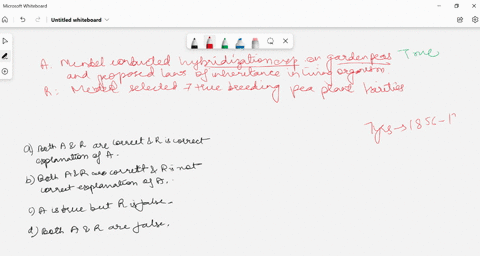 Microsoft Whiteboard
Untitled whiteboard
A. Mendel conducted hybridization exp on garden peas True
and proposed laws of inheritance in living organism
R: Mendel selected 7 true breeding pea plant
7yrs → 1856-1
a) Both A & R are correct & R is correct
explanation of A.
b) Both A & R are correct & R is not
correct explanation of A.
c) A is true but R is false
d) Both A & R are false.